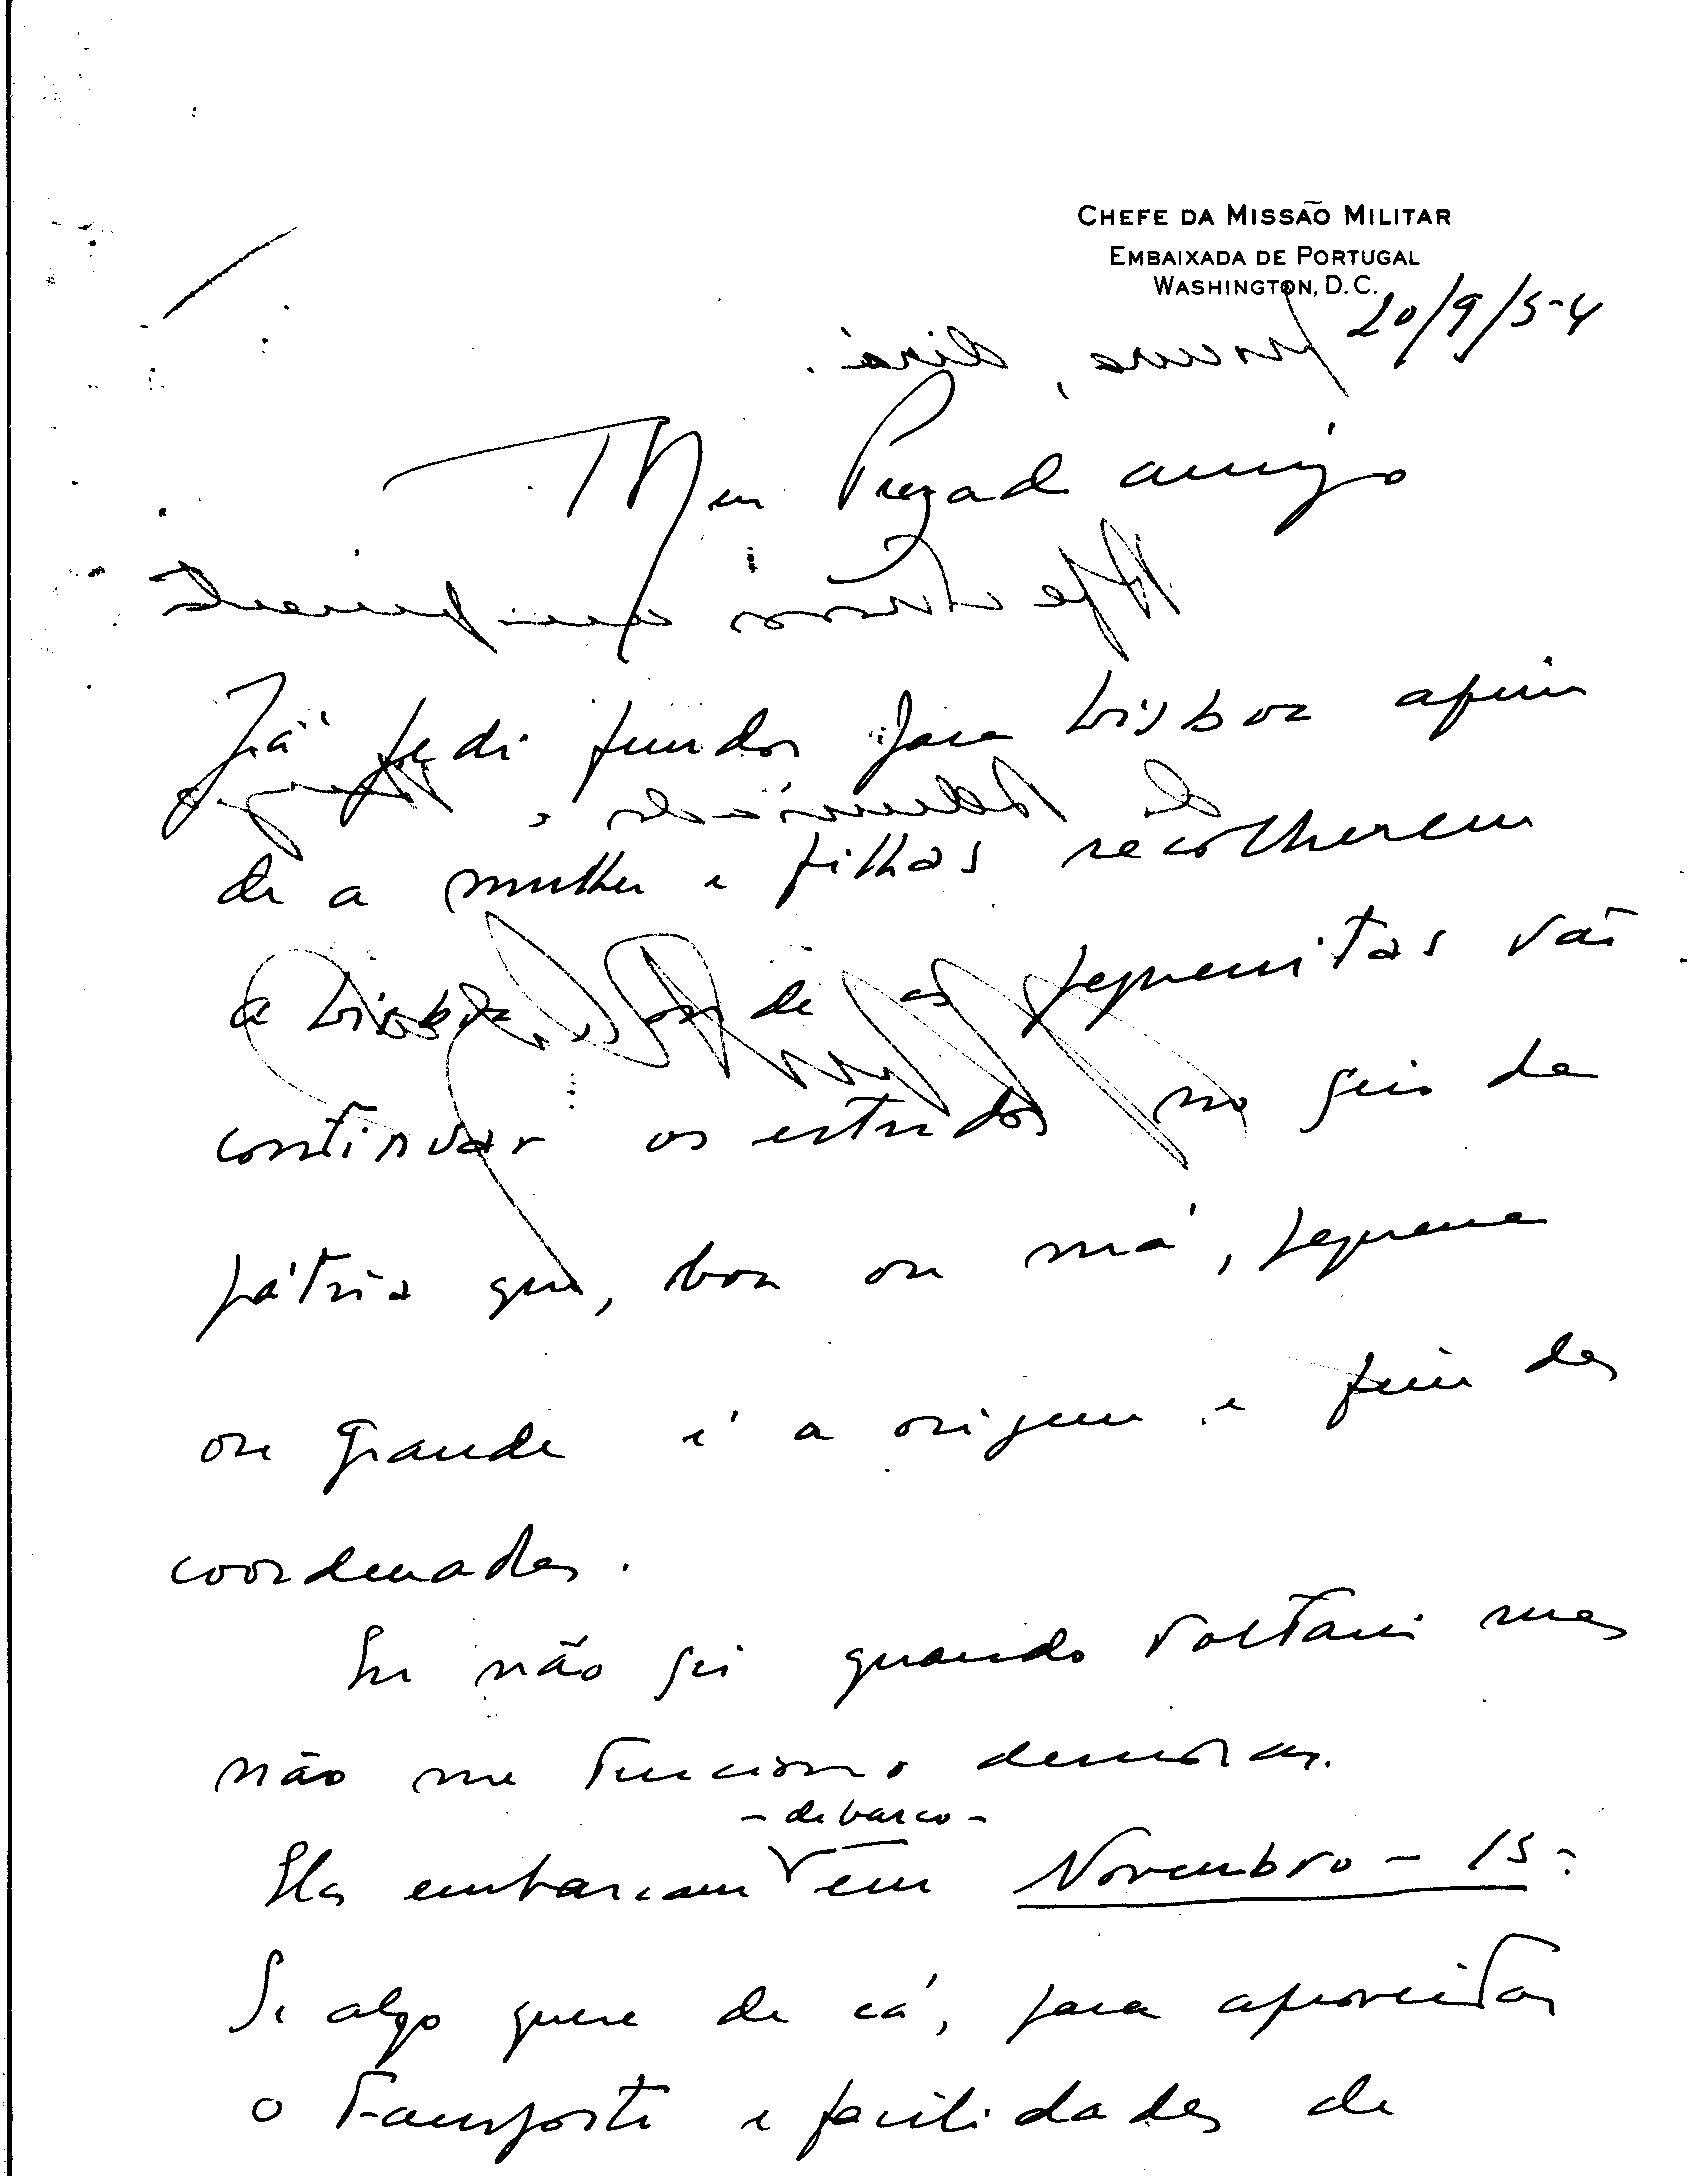 CHEFE DA MISSÃO MILITAR
EMBAIXADA DE PORTUGAL
WASHINGTON, D.C.
20/9/54
Meu Prezado amigo
Já pedi fundos para Lisboa afim
de a mulher e filhas recolherem
a Lisboa, onde as pequenitas vão
continuar os estudos no seio da
pátria que, boa ou má, pequena
ou grande é a origem e fim das
coordenadas.
Eu não sei quando voltarei mas
não me tenciono demorar.
- de barco -
Elas embarcam em Novembro - 15 -
Se algo quere de cá, para aproveitar
o transporte e facilidades de